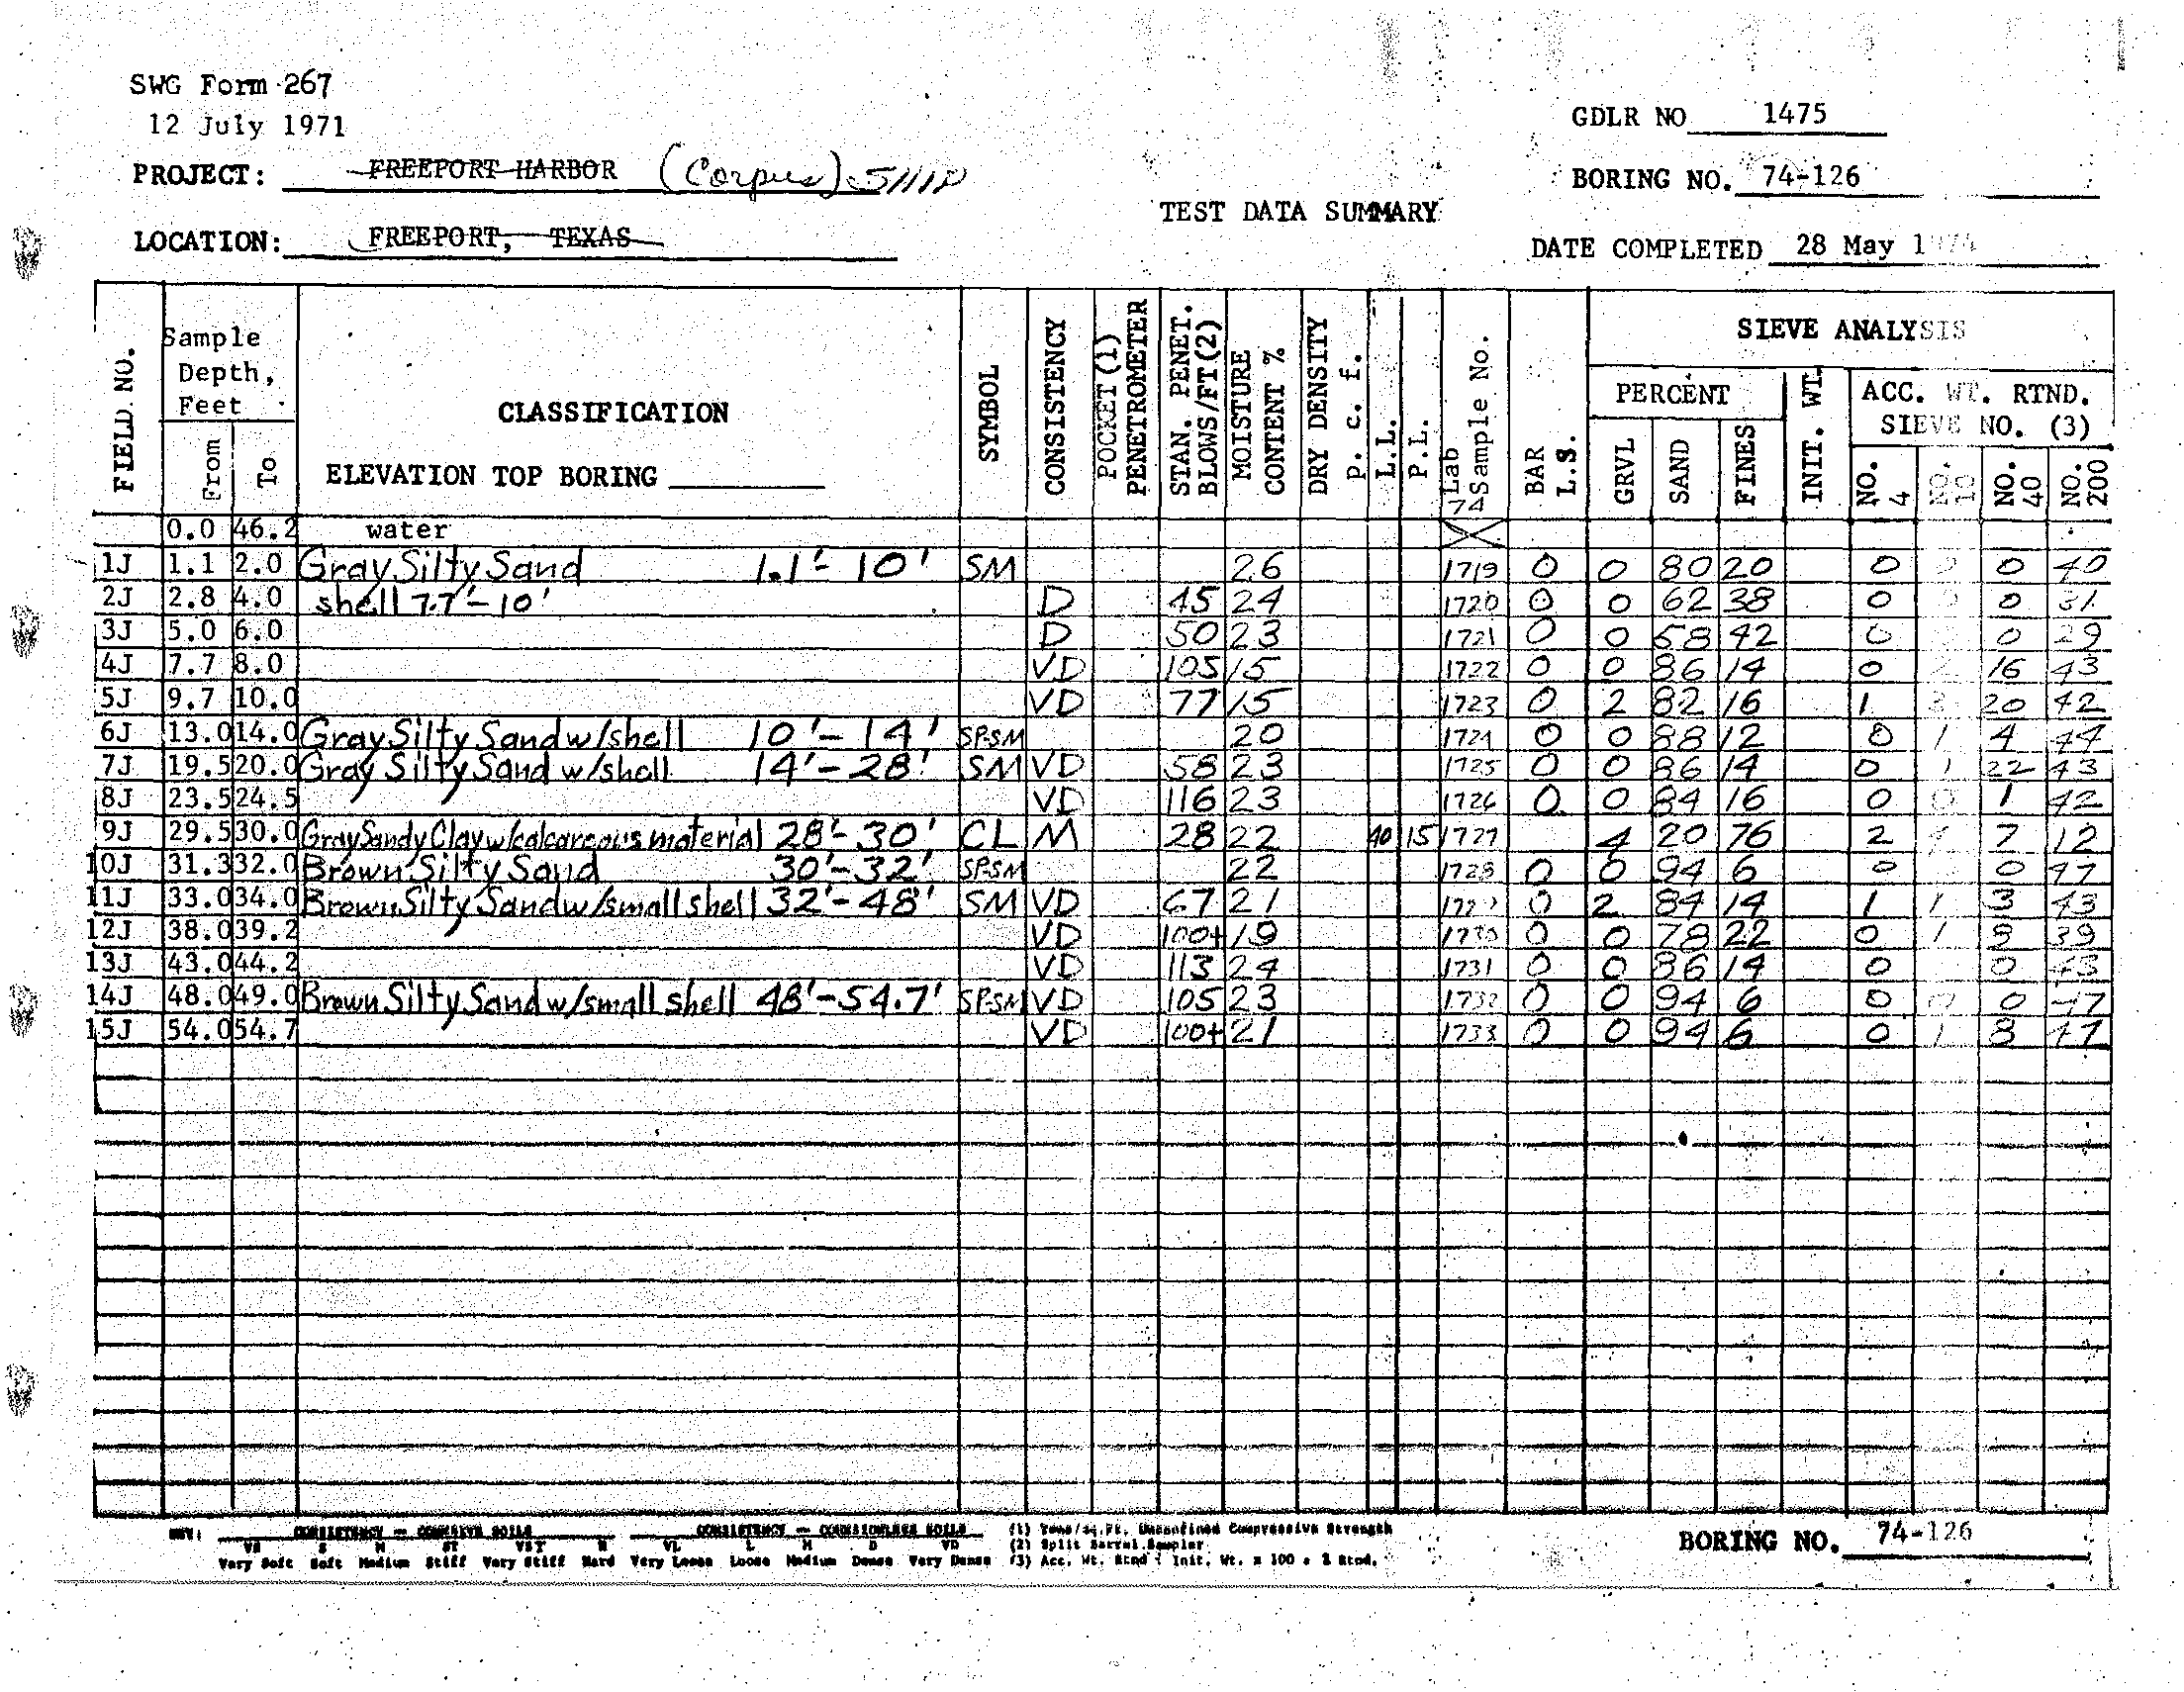 SWG Form 267
12 July 1971
GDLR NO 1475
PROJECT: FREEPORT HARBOR (Corpus)
BORING NO. 74-126
TEST DATA SUMMARY
LOCATION: FREEPORT, TEXAS
DATE COMPLETED 28 May
FIELD NO. Sample Depth, Feet From To CLASSIFICATION ELEVATION TOP BORING SYMBOL CONSISTENCY POCKET (1) PENETROMETER STAN. PENET. BLOWS/FT(2) MOISTURE CONTENT % DRY DENSITY p. c. f. L.L. P.L. Lab Sample No. 74 BAR L.S. SIEVE ANALYSIS PERCENT GRVL SAND FINES INIT. WT. ACC. WT. RTND. SIEVE NO. (3) NO. 4 NO. 10 NO. 40 NO. 200
0.0 46.2 water
1J 1.1 2.0 Gray Silty Sand 1.1'- 10' SM 26 1719 0 0 80 20 0 0 40
2J 2.8 4.0 shell 7.7'-10' D 45 24 1720 0 0 62 38 0 0 31
3J 5.0 6.0 D 50 23 1721 0 0 58 42 0 0 29
4J 7.7 8.0 VD 105 15 1722 0 0 86 14 0 16 43
5J 9.7 10.0 VD 77 15 1723 0 2 82 16 1 20 42
6J 13.0 14.0 Gray Silty Sand w/shell 10'- 14' SP-SM 20 1724 0 0 88 12 0 1 4 44
7J 19.5 20.0 Gray Silty Sand w/shell 14'- 28' SM VD 58 23 1725 0 0 86 14 0 1 22 43
8J 23.5 24.5 VD 116 23 1726 0 0 84 16 0 0 1 42
9J 29.5 30.0 Gray Sandy Clay w/calcareous material 28'- 30' CL M 28 22 40 15 1727 4 20 76 2 7 12
10J 31.3 32.0 Brown Silty Sand 30'- 32' SP-SM 22 1728 0 0 94 6 0 0 47
11J 33.0 34.0 Brown Silty Sand w/small shell 32'- 48' SM VD 67 21 0 2 84 14 1 1 3 43
12J 38.0 39.2 VD 100+ 19 1730 0 0 78 22 0 1 8 39
13J 43.0 44.2 VD 113 24 1731 0 0 86 14 0 0 43
14J 48.0 49.0 Brown Silty Sand w/small shell 48'-54.7' SP-SM VD 105 23 1732 0 0 94 6 0 0 0 47
15J 54.0 54.7 VD 100+ 21 1733 0 0 94 6 0 1 8 47
KEY: CONSISTENCY — COHESIVE SOILS CONSISTENCY — COHESIONLESS SOILS (1) Tons/sq.Ft. Unconfined Compressive Strength
VS S M ST VST H VL L M D VD (2) Split Barrel Sampler
Very Soft Soft Medium Stiff Very Stiff Hard Very Loose Loose Medium Dense Very Dense (3) Acc. Wt. Rtnd ÷ Init. Wt. x 100 = % Rtnd.
BORING NO. 74-126